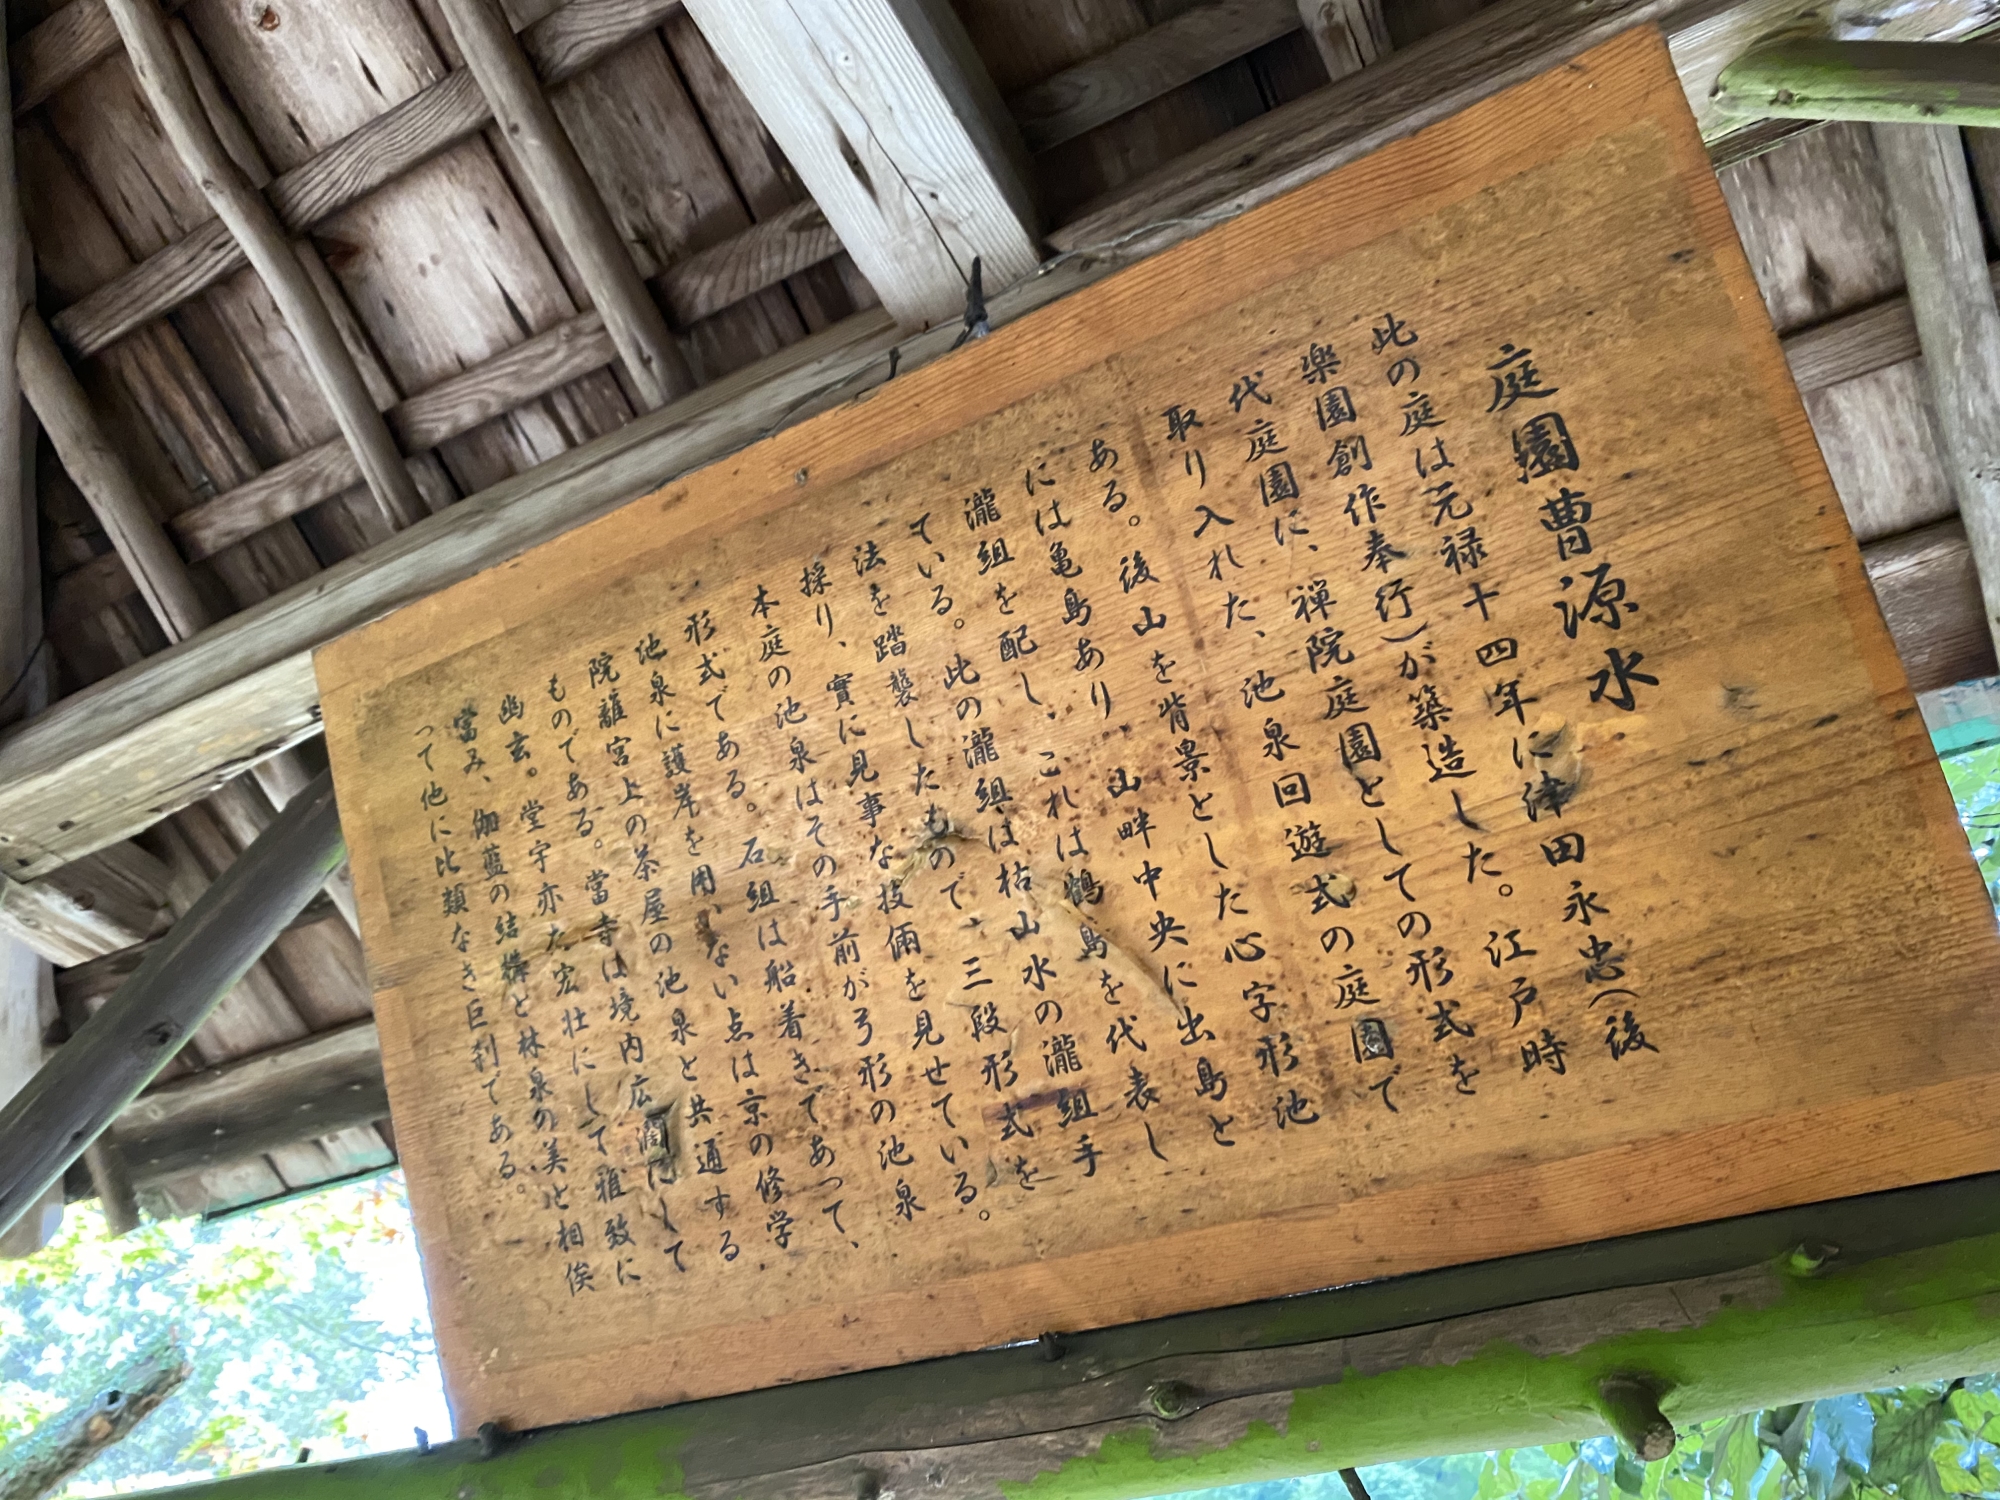 庭園曹源水
此の庭は元禄十四年に津田永忠(後
楽園創作奉行)が築造した。江戸時
代庭園に、禅院庭園としての形式を
取り入れた、池泉回遊式の庭園で
ある。後山を背景とした心字形池
には亀島あり、山畔中央に出島と
瀧組を配し、これは鶴島を代表し
ている。此の瀧組は枯山水の瀧組手
法を踏襲したもので、三段形式を
採り、實に見事な技倆を見せている。
本庭の池泉はその手前が弓形の池泉
形式である。石組は船着きであって、
池泉に護岸を用いない点は京の修学
院離宮上の茶屋の池泉と共通する
ものである。當寺は境内広濶にして
幽玄。堂宇亦た宏壮にして雅致に
富み、伽藍の結構と林泉の美と相俟
って他に比類なき巨刹である。